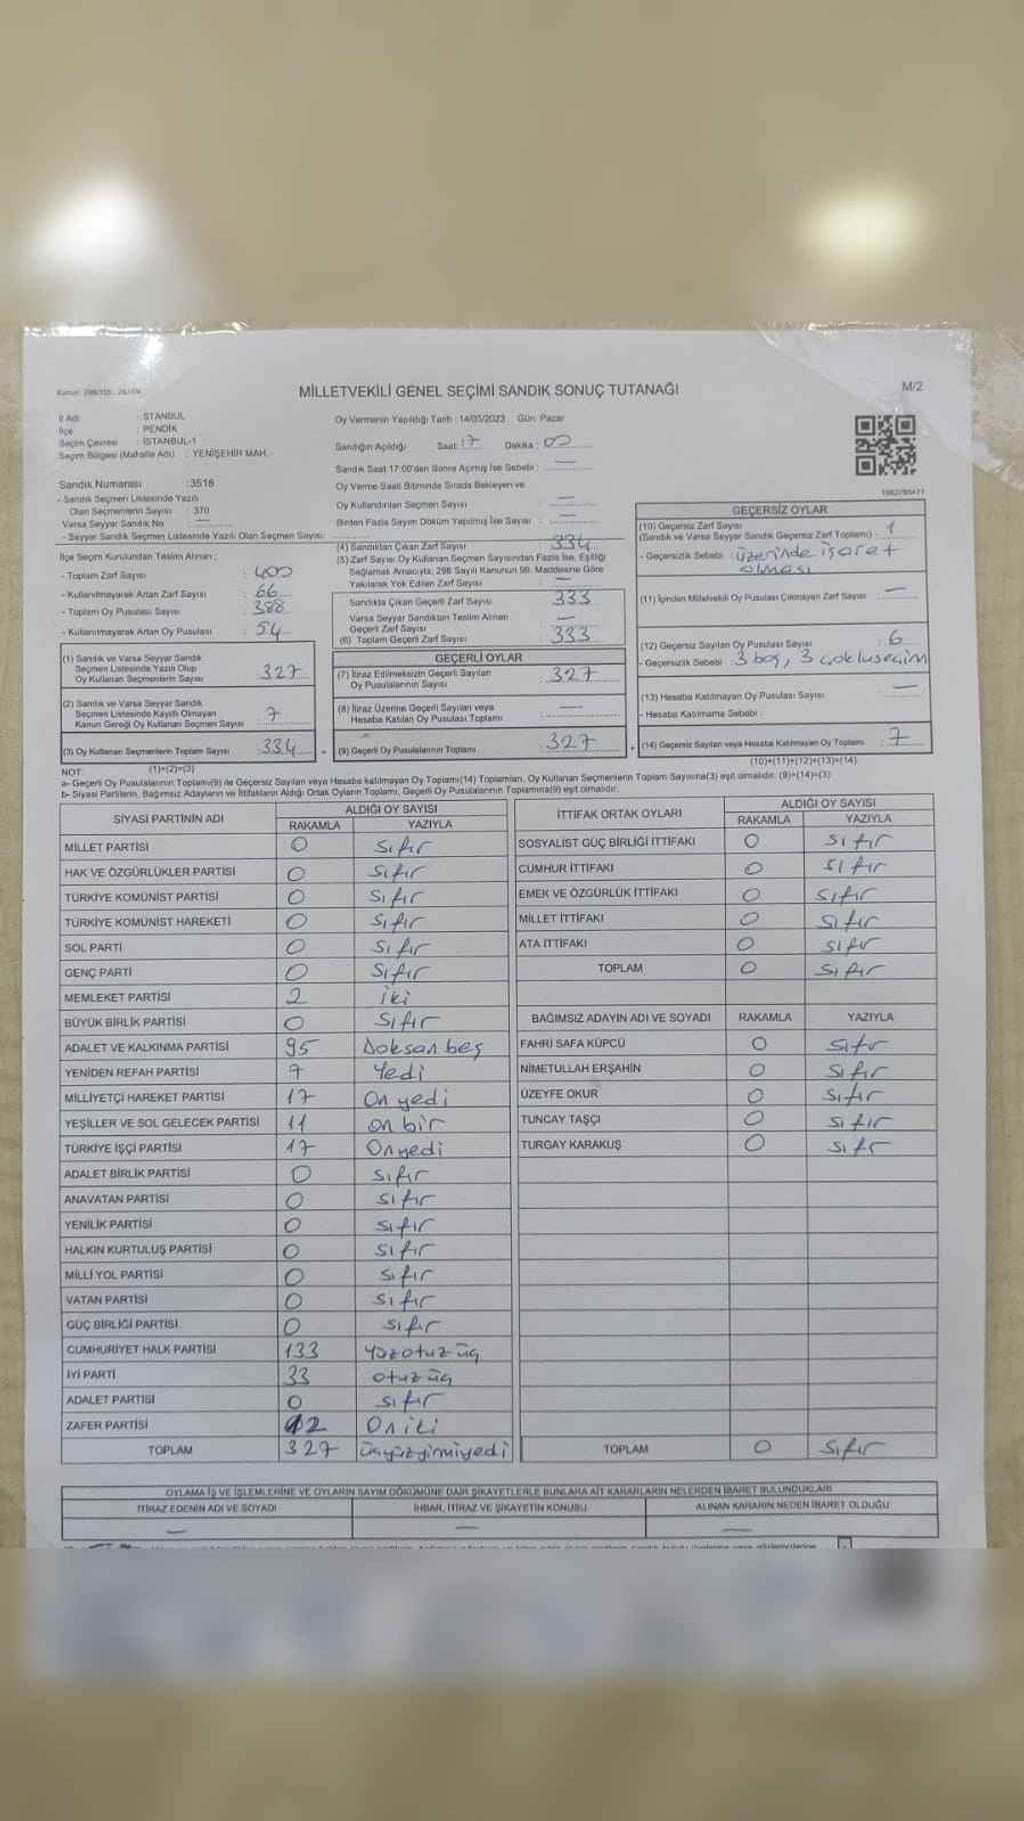 MİLLETVEKİLİ GENEL SEÇİMİ SANDIK SONUÇ TUTANAĞI
M/2
İl Adı : İSTANBUL
İlçe : PENDİK
Seçim Çevresi : İSTANBUL-1
Seçim Bölgesi (Mahalle Adı) : YENİŞEHİR MAH.
Sandık Numarası :3518
- Sandık Seçmen Listesinde Yazılı
Olan Seçmenlerin Sayısı : 370
Varsa Seyyar Sandık No : —
- Seyyar Sandık Seçmen Listesinde Yazılı Olan Seçmen Sayısı:
Oy Vermenin Yapıldığı Tarih : 14/05/2023 Gün: Pazar
Sandığın Açıldığı Saat: 17 Dakika: 00
Sandık Saat 17:00'den Sonra Açılmış İse Sebebi : —
Oy Verme Saati Bitiminde Sırada Bekleyen ve
Oy Kullandırılan Seçmen Sayısı : —
Birden Fazla Sayım Döküm Yapılmış İse Sayısı : —
İlçe Seçim Kurulundan Teslim Alınan ;
- Toplam Zarf Sayısı : 400
- Kullanılmayarak Artan Zarf Sayısı : 66
- Toplam Oy Pusulası Sayısı : 388
- Kullanılmayarak Artan Oy Pusulası : 54
(1) Sandık ve Varsa Seyyar Sandık
Seçmen Listesinde Yazılı Olup
Oy Kullanan Seçmenlerin Sayısı : 327
(2) Sandık ve Varsa Seyyar Sandık
Seçmen Listesinde Kayıtlı Olmayan
Kanun Gereği Oy Kullanan Seçmen Sayısı : 7
(3) Oy Kullanan Seçmenlerin Toplam Sayısı : 334
(1)+(2)=(3)
(4) Sandıktan Çıkan Zarf Sayısı : 334
(5) Zarf Sayısı Oy Kullanan Seçmen Sayısından Fazla İse, Eşitliği
Sağlamak Amacıyla; 298 Sayılı Kanunun 98. Maddesine Göre
Yakılarak Yok Edilen Zarf Sayısı : —
Sandıkta Çıkan Geçerli Zarf Sayısı : 333
Varsa Seyyar Sandıktan Teslim Alınan
Geçerli Zarf Sayısı : —
(6) Toplam Geçerli Zarf Sayısı : 333
GEÇERLİ OYLAR
(7) İtiraz Edilmeksizin Geçerli Sayılan
Oy Pusulalarının Sayısı : 327
(8) İtiraz Üzerine Geçerli Sayılan veya
Hesaba Katılan Oy Pusulası Toplamı : —
(9) Geçerli Oy Pusulalarının Toplamı : 327
GEÇERSİZ OYLAR
(10) Geçersiz Zarf Sayısı
(Sandık ve Varsa Seyyar Sandık Geçersiz Zarf Toplamı) : 1
- Geçersizlik Sebebi : üzerinde işaret
olması
(11) İçinden Milletvekili Oy Pusulası Çıkmayan Zarf Sayısı : —
(12) Geçersiz Sayılan Oy Pusulası Sayısı : 6
- Geçersizlik Sebebi : 3 boş, 3 çoklu seçim
(13) Hesaba Katılmayan Oy Pusulası Sayısı : —
- Hesaba Katılmama Sebebi :
(14) Geçersiz Sayılan veya Hesaba Katılmayan Oy Toplamı : 7
(10)+(11)+(12)+(13)=(14)
NOT:
a- Geçerli Oy Pusulalarının Toplamı(9) ile Geçersiz Sayılan veya Hesaba katılmayan Oy Toplamı(14) Toplamları, Oy Kullanan Seçmenlerin Toplam Sayısına(3) eşit olmalıdır. (9)+(14)=(3)
b- Siyasi Partilerin, Bağımsız Adayların ve İttifakların Aldığı Ortak Oyların Toplamı, Geçerli Oy Pusulalarının Toplamına(9) eşit olmalıdır.
SİYASİ PARTİNİN ADI ALDIĞI OY SAYISI
RAKAMLA YAZIYLA
MİLLET PARTİSİ 0 Sıfır
HAK VE ÖZGÜRLÜKLER PARTİSİ 0 Sıfır
TÜRKİYE KOMÜNİST PARTİSİ 0 Sıfır
TÜRKİYE KOMÜNİST HAREKETİ 0 Sıfır
SOL PARTİ 0 Sıfır
GENÇ PARTİ 0 Sıfır
MEMLEKET PARTİSİ 2 İki
BÜYÜK BİRLİK PARTİSİ 0 Sıfır
ADALET VE KALKINMA PARTİSİ 95 Doksan beş
YENİDEN REFAH PARTİSİ 7 Yedi
MİLLİYETÇİ HAREKET PARTİSİ 17 On yedi
YEŞİLLER VE SOL GELECEK PARTİSİ 11 on bir
TÜRKİYE İŞÇİ PARTİSİ 17 Onyedi
ADALET BİRLİK PARTİSİ 0 Sıfır
ANAVATAN PARTİSİ 0 Sıfır
YENİLİK PARTİSİ 0 Sıfır
HALKIN KURTULUŞ PARTİSİ 0 Sıfır
MİLLİ YOL PARTİSİ 0 Sıfır
VATAN PARTİSİ 0 Sıfır
GÜÇ BİRLİĞİ PARTİSİ 0 Sıfır
CUMHURİYET HALK PARTİSİ 133 Yüzotuzüç
İYİ PARTİ 33 otuzüç
ADALET PARTİSİ 0 Sıfır
ZAFER PARTİSİ 12 Oniki
TOPLAM 327 üçyüzyirmiyedi
İTTİFAK ORTAK OYLARI ALDIĞI OY SAYISI
RAKAMLA YAZIYLA
SOSYALİST GÜÇ BİRLİĞİ İTTİFAKI 0 Sıfır
CUMHUR İTTİFAKI 0 Sıfır
EMEK VE ÖZGÜRLÜK İTTİFAKI 0 Sıfır
MİLLET İTTİFAKI 0 Sıfır
ATA İTTİFAKI 0 Sıfır
TOPLAM 0 Sıfır
BAĞIMSIZ ADAYIN ADI VE SOYADI RAKAMLA YAZIYLA
FAHRİ SAFA KÜPCÜ 0 Sıfır
NİMETULLAH ERŞAHİN 0 Sıfır
ÜZEYFE OKUR 0 Sıfır
TUNCAY TAŞÇI 0 Sıfır
TURGAY KARAKUŞ 0 Sıfır
TOPLAM 0 Sıfır
OYLAMA İŞ VE İŞLEMLERİNE VE OYLARIN SAYIM DÖKÜMÜNE DAİR ŞİKAYETLERLE BUNLARA AİT KARARLARIN NELERDEN İBARET BULUNDUKLARI
İTİRAZ EDENİN ADI VE SOYADI İHBAR, İTİRAZ VE ŞİKAYETİN KONUSU ALINAN KARARIN NEDEN İBARET OLDUĞU
— — —